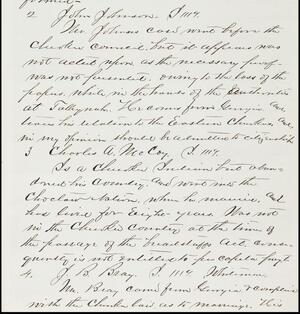 2 John Johnson. D 1114.
Mr Johnsons case went before the
Cherokee council, but it appears was
not acted upon as the necessary proof
was not presented, owing to the loss of the
papers, while in the hands of the Authorities
at Tallequah. He comes from Georgia and
in my opinion should be admitted to citizenship
3 Charles A. McCoy. D. 1114.
Is a Cherokee Indian but aban-
doned his Country, and went into the
Choctaw Nation, when he married, and
has lived for Eight years. Was not
in the Cherokee Country at the time of
the passage of the breadstuffs Act, conse-
quently is not entitled to per capita
4. J. B. Bray. D 1114
Mr. Bray came from Georgia & complied
with the Cherokee laws as to marriage. His